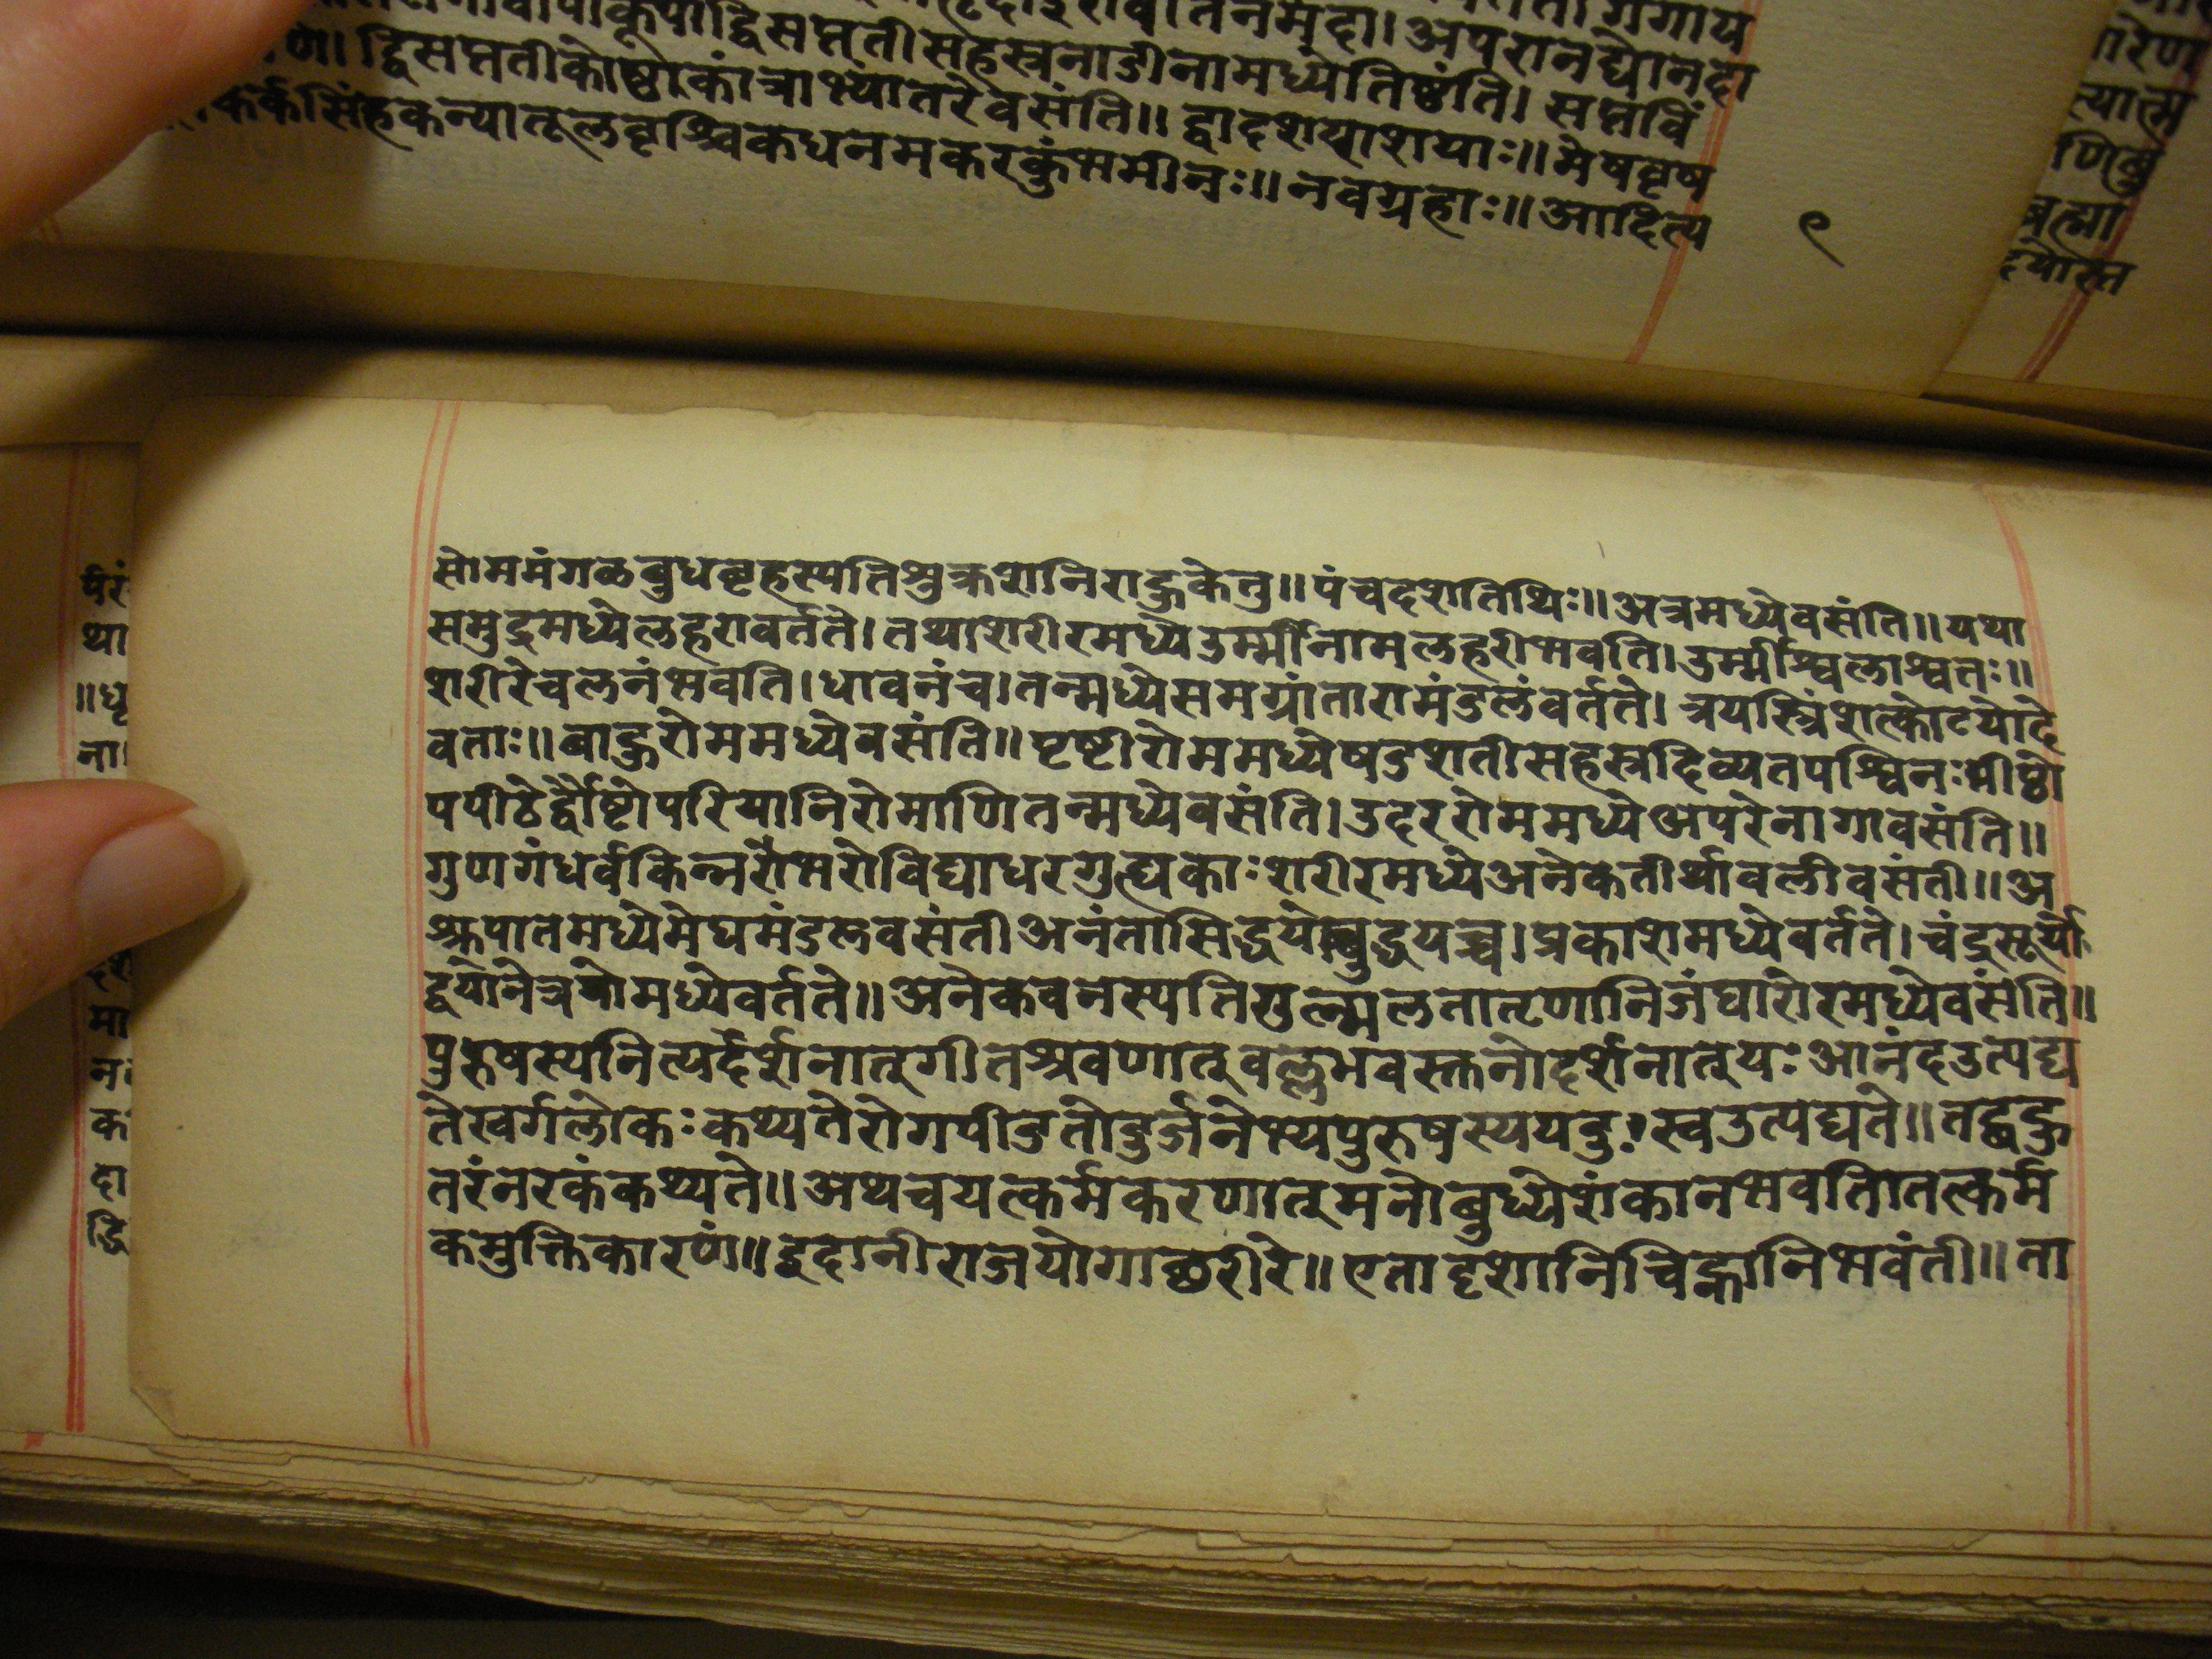 द्विसप्ततीसहस्त्रनाडीनामध्येतिष्ठंति। सप्तविं
द्विसप्ततीकोष्ठाकांत्राभ्यातरेवसंति॥ द्वादशराशयाः॥ मेषवृष
कर्कसिंहकन्यातूलवृश्चिकधनमकरकुंभमीनः॥ नवग्रहाः॥ आदित्य
९
सोममंगळबुधबृहस्पतिशुक्रशनिराहुकेतु॥ पंचदशतिथिः॥ अत्रमध्येवसंति॥ यथा
समुद्रमध्येलहरावर्तते। तथाशरीरमध्येउर्म्मीनामलहरीभवति। उर्म्मीश्चलाश्चतः॥
शरीरेचलनंभवति। धावनंच। तन्मध्येसमग्रांतारामंडलंवर्तते। त्रयस्त्रिंशत्कोटयोदे
वताः॥ बाहुरोममध्येवसंति॥ पृष्टीरोममध्येषडशतीसहस्त्रदिव्यतपश्विनः पीठो
पपीठेर्द्वौष्टोपरियानिरोमाणितन्मध्येवसंति। उदररोममध्येअपरेनागावसंति॥
गुणगंधर्वकिन्नरौभरोविद्याधरगुह्यकाः शरीरमध्येअनेकतीर्थावलीवसंती॥ अ
श्रुपातमध्येमेघमंडलवसंती अनंतासिद्धये बुद्धयच्च। प्रकाशमध्येवर्तते। चंद्रसूर्यो
द्वयोनेत्रयोमध्येवर्तते॥ अनेकवनस्पतिगुल्मलतातृणानिजंघारोरमध्येवसंति॥
पुरुषस्यनित्यर्दर्शनात्गीतश्रवणात्वल्लभवस्तनोदर्शनात्यः आनंदउत्पद्य
तेस्वर्गलोकः कथ्यतेरोगपीडतोदुर्जनेभ्यपुरुषस्ययदुःस्वउत्पद्यते॥ तद्बहु
तरंनरकंकथ्यते॥ अथचयत्कर्मकरणात्मनोबुध्येशंकानभवति। तत्कर्म
कमुक्तिकारणं॥ इदानीराजयोगाछरीरे॥ एतादृशानिचिह्नानिभवंती॥ ता